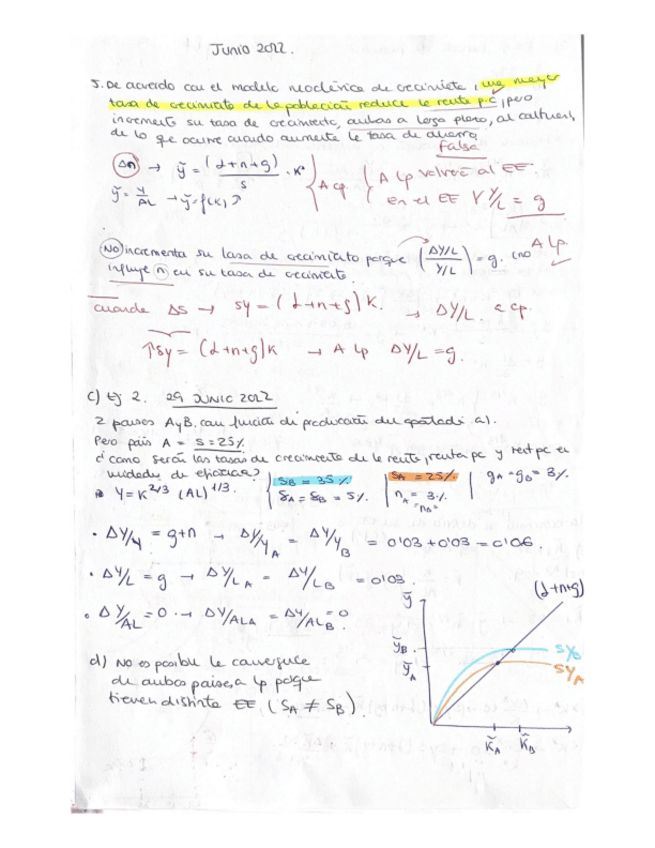 Junio 2022.
5. De acuerdo con el modelo neoclásico de crecimiento, una mayor
tasa de crecimiento de la población reduce la renta p.c, pero
incrementa su tasa de crecimiento, ambos a largo plazo, al contrario
de lo que ocurre cuando aumenta la tasa de ahorro.
Falsa
Δn → ỹ = (d+n+g)/s · K*
ỹ = Y/AL → ỹ = f(K)
A cp.
A Lp volverá al EE.
en el EE Y/L = g
No incrementa su tasa de crecimiento porque (ΔY/L / Y/L) = g. (no
influye n) en su tasa de crecimiento.
A Lp.
cuando Δs → sy = (d+n+g) K. → ΔY/L a cp.
↑sy = (d+n+g)K → A Lp ΔY/L = g.
c) Ej 2. 29 JUNIO 2022
2 países A y B, con función de producción del apartado a).
Pero país A = s = 25%
¿cómo serán las tasas de crecimiento de la renta, renta pc y rent pc en
unidades de eficiencia?
Y = K^2/3 (AL)^1/3.
S_B = 35%.
δ_A = δ_B = 5%.
S_A = 25%.
n_A = 3%.
= n_B =
g_A = g_B = 3%.
• ΔY/Y = g+n → ΔY/Y_A = ΔY/Y_B = 0'03 + 0'03 = 0'06.
• ΔY/L = g → ΔY/L_A = ΔY/L_B = 0'03.
• ΔY/AL = 0 → ΔY/AL_A = ΔY/AL_B = 0.
ỹ
(d+n+g)
ỹ_B
sy_B
ỹ_A
sy_A
K̃_A K̃_B
d) No es posible la convergencia
de ambos países, a lp porque
tienen distinto EE (S_A ≠ S_B).